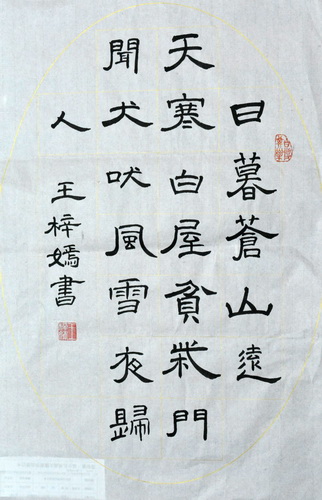 日暮蒼山遠
天寒白屋貧柴門
聞犬吠風雪夜歸
人 王梓嫣書